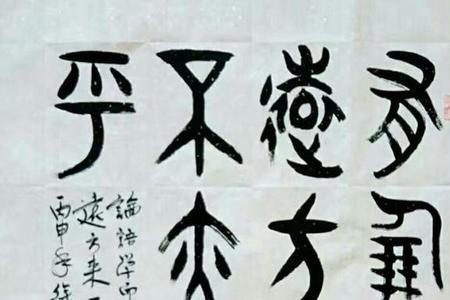 有朋
遠方
不亦
乎
論語學而
遠方来
丙申年